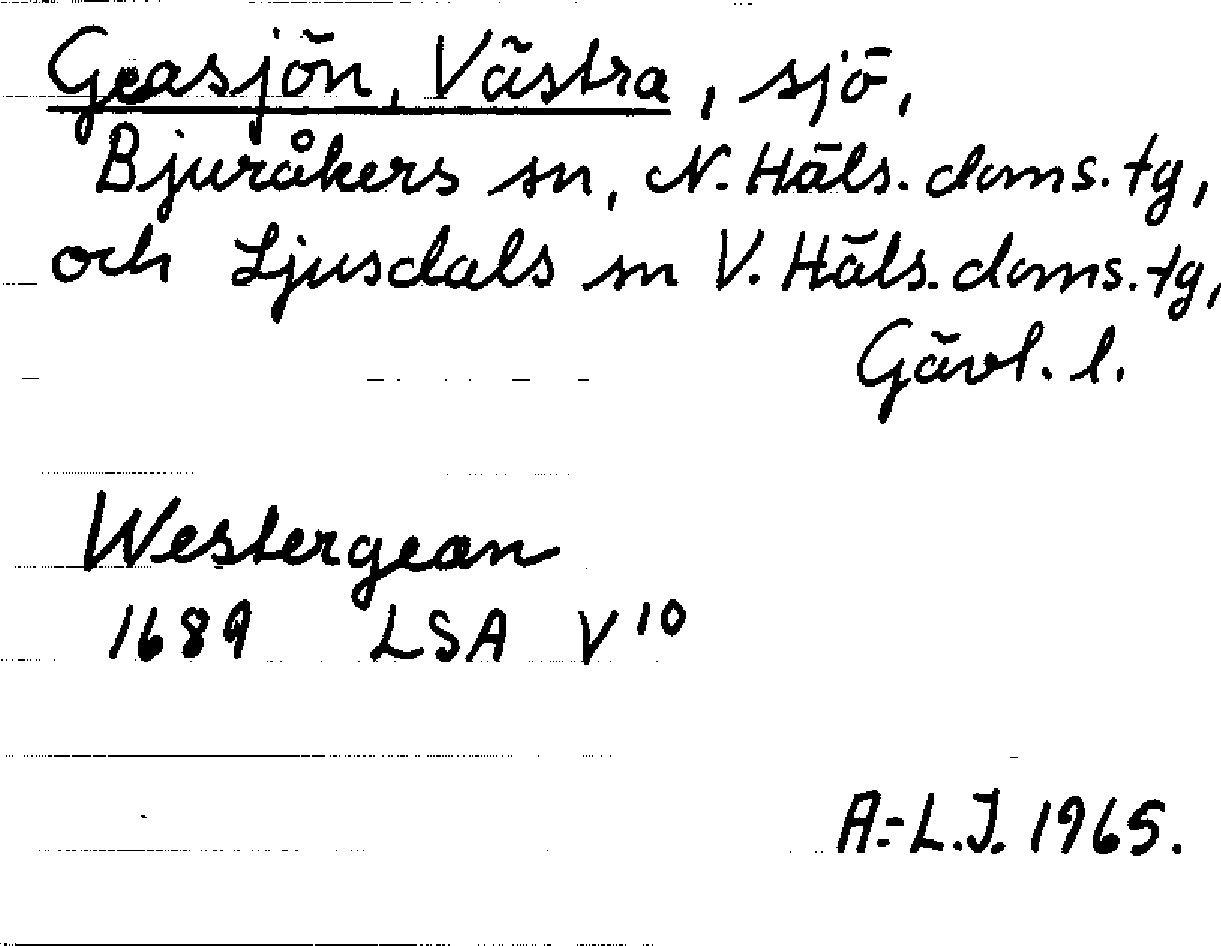 Geasjön, Västra, sjö,
Bjuråkers sn, N. Häls. doms. tg,
och Ljusdals sn V. Häls. doms. tg,
Gävl. l.
Westergean
1689 LSA V 10
A.-L.J. 1965.